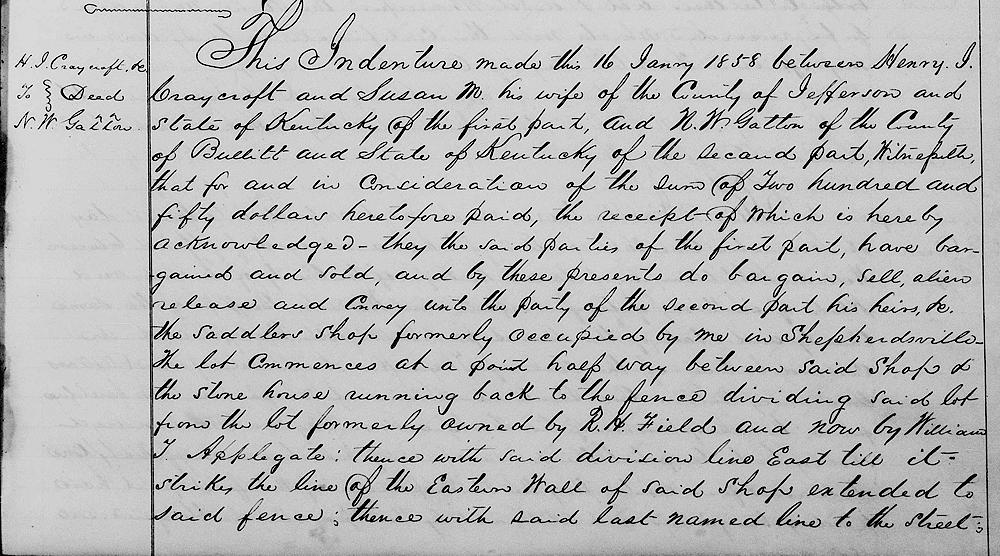 H. I. Craycroft, &c.
To } Deed
N. W. Gatton.
This Indenture made this 16 Janry 1858 between Henry. I.
Craycroft and Susan M. his wife of the County of Jefferson and
State of Kentucky of the first part, and N. W. Gatton of the County
of Bullitt and State of Kentucky of the second part, Witnesseth,
that for and in Consideration of the sum of Two hundred and
fifty dollars heretofore paid, the receipt of Which is hereby
acknowledged - they the said parties of the first part, have bar-
gained and sold, and by these presents do bargain, sell, alien
release and Convey unto the party of the second part his heirs, &c.
the saddlers shop formerly occupied by me in Shepherdsville -
The lot Commences at a point half way between said Shop &
the stone house running back to the fence dividing said lot
from the lot formerly owned by R. H. Field and now by William
T Applegate : thence with said division line East till it
strikes the line of the Eastern Wall of said Shop extended to
said fence ; thence with said last named line to the street ;